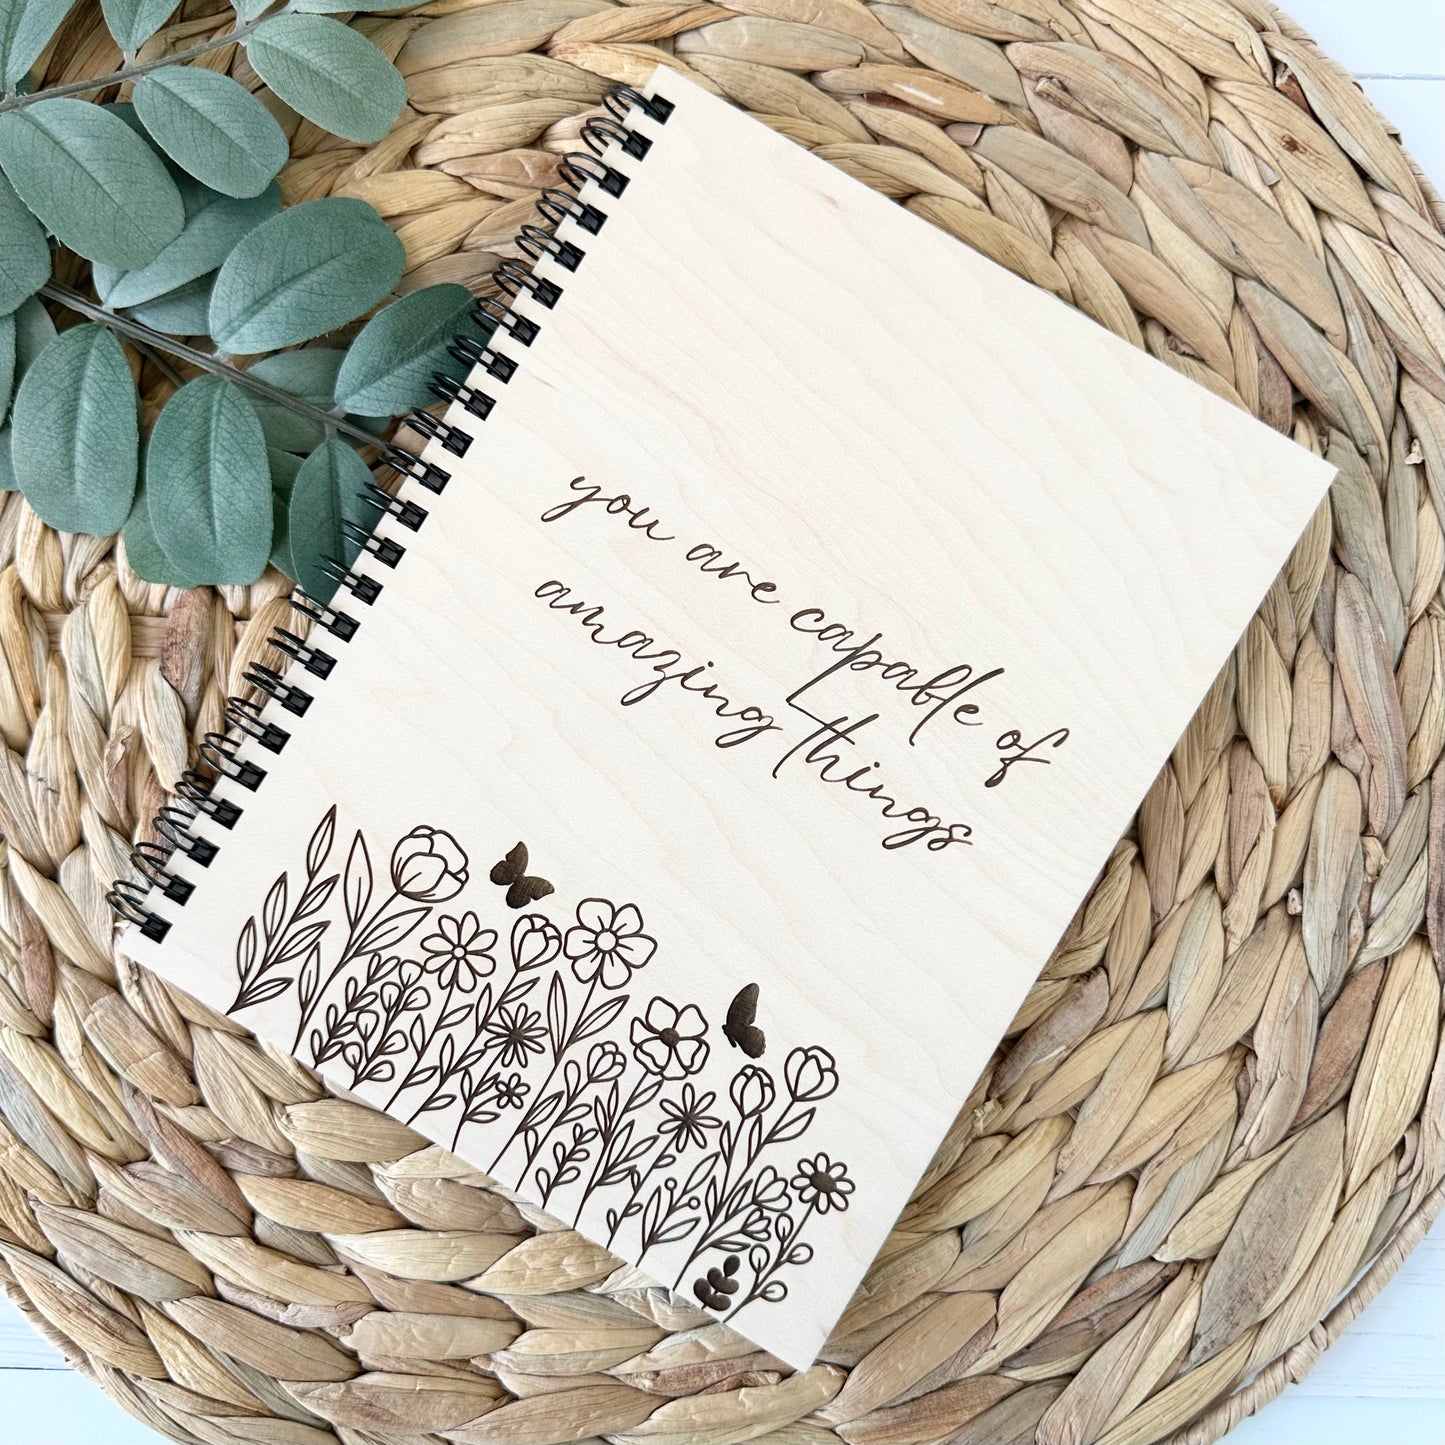 you are capable of
amazing things